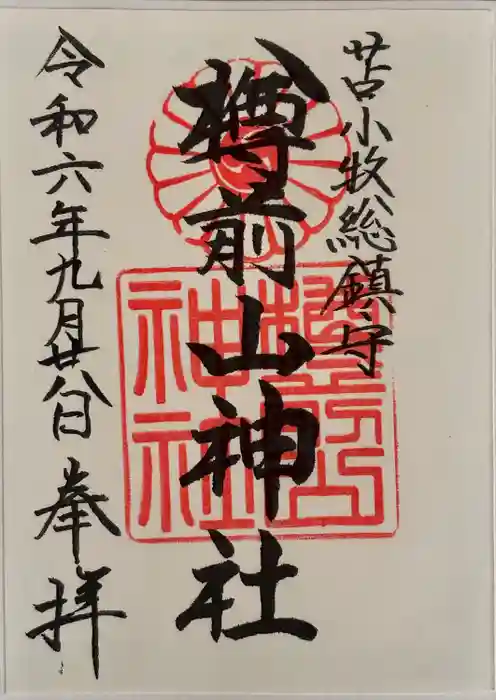 苫小牧総鎮守
樽前山神社
令和六年九月廿八日 奉拝
樽前山
神社